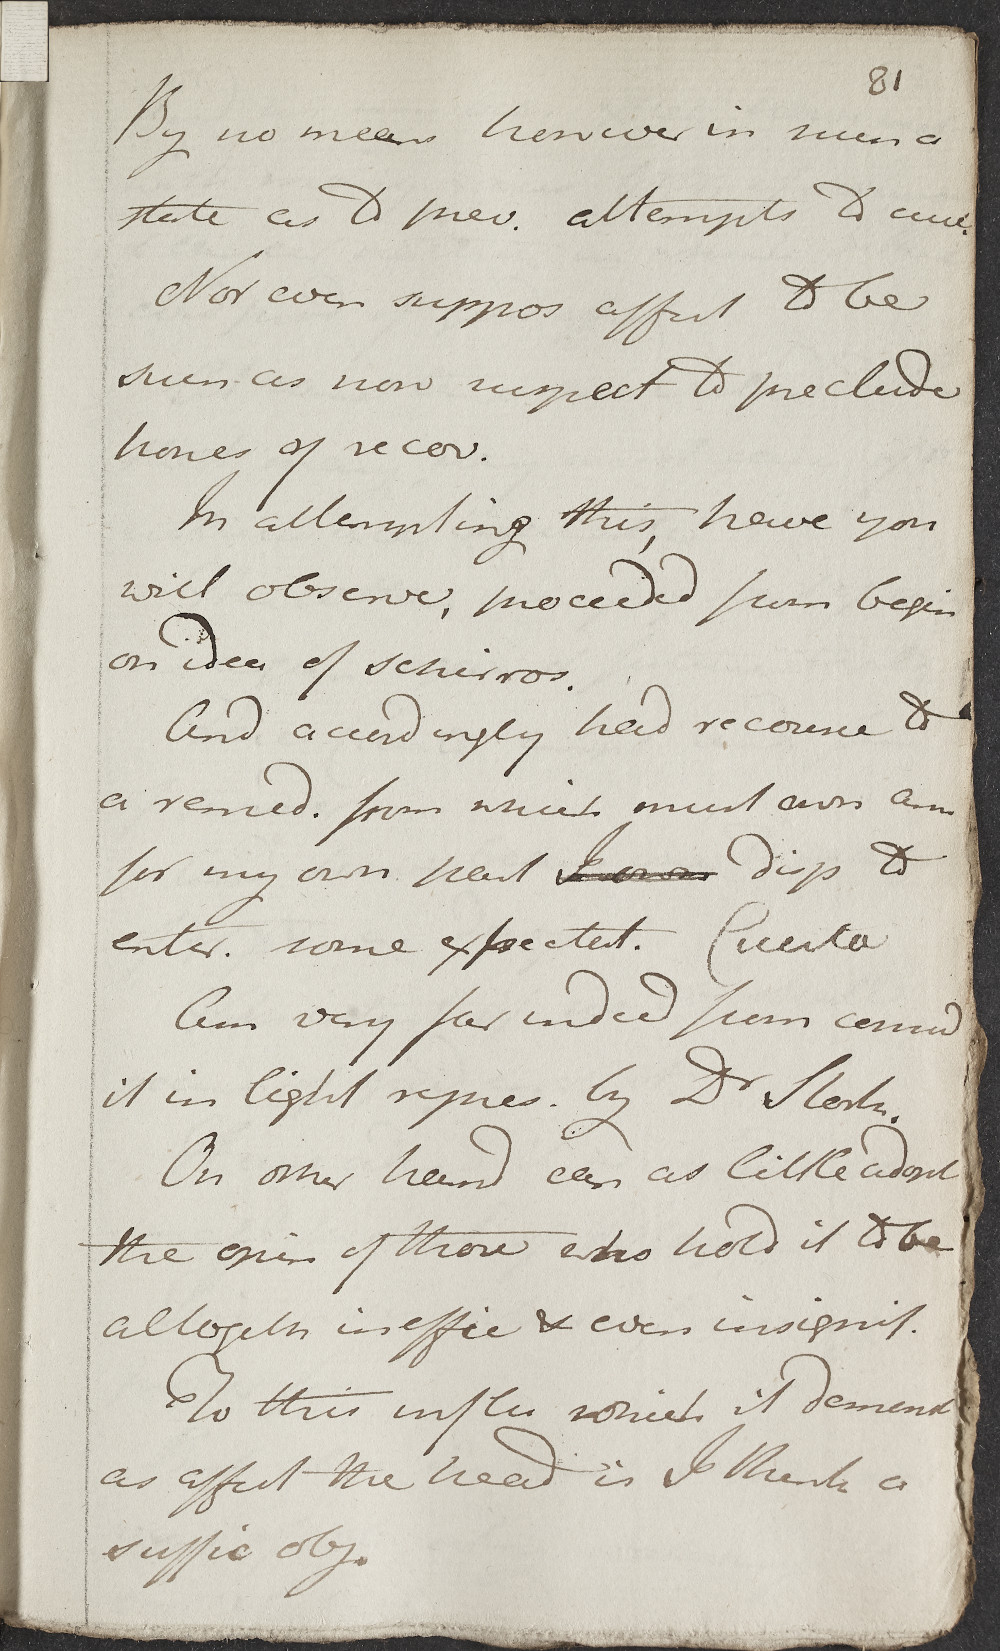 81
By no means however in such a
state as to prev. attempts to cure.
Nor even suppos affect to be
such as now suspect to preclude
hopes of recov.
In attempting this, have you
will observe, proceeded from begin
on idea of schirros.
And accordingly had recourse to
a remed. from which must own am
for my own part I own disp to
enter. some expectat. Cicuta
Am very far indeed from consid
it in light repres. by Dr Stork.
On other hand can as little adopt
the opin of those who hold it to be
altogeth ineffic & even insignif.
To this influ which it demonst
as affect the head is I think a
suffic obj.